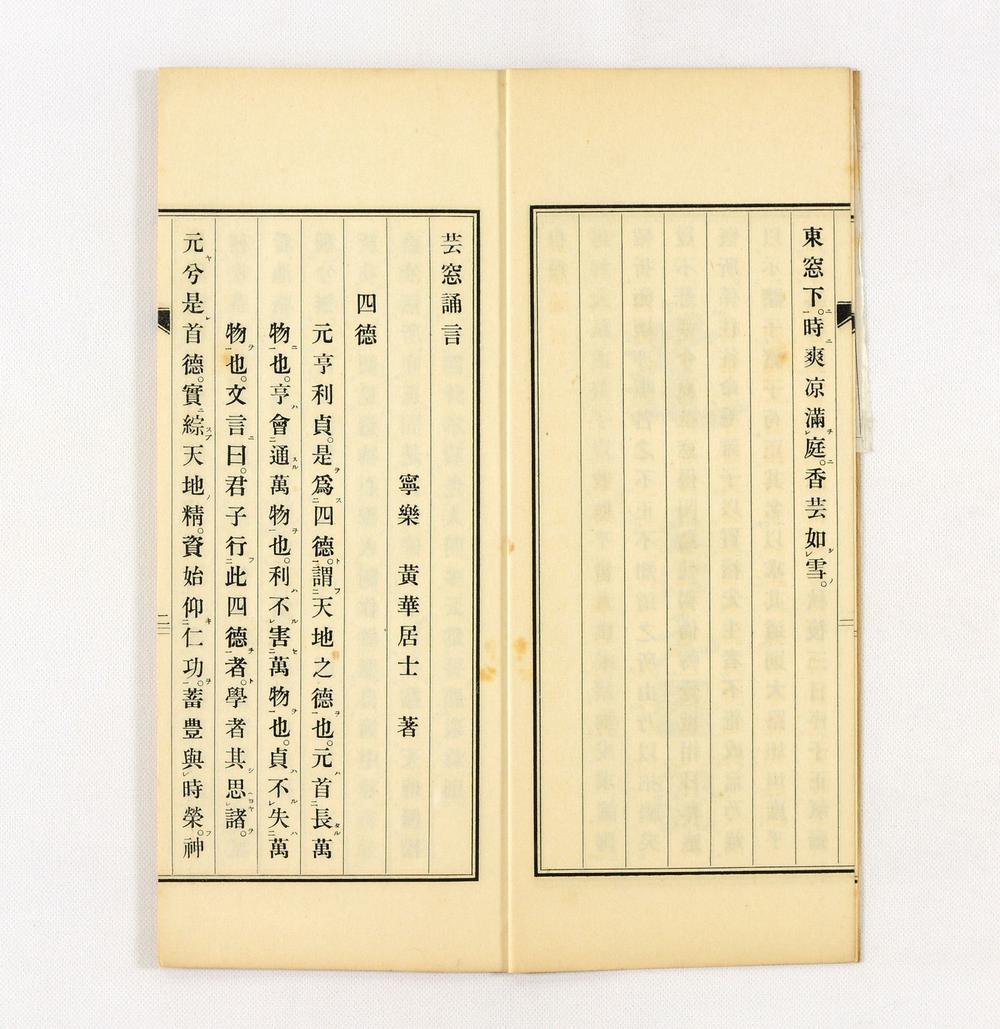 東窓下。時爽凉滿庭。香芸如雪。
二
芸窓誦言
寧樂 黃華居士 著
四德
元亨利貞。是爲四德。謂天地之德也。元首長萬
物也。亨會通萬物也。利不害萬物也。貞不失萬
物也。文言曰。君子行此四德者。學者其思諸。
元兮是首德。實綜天地精。資始仰仁功。蓄豊與時榮。神
二